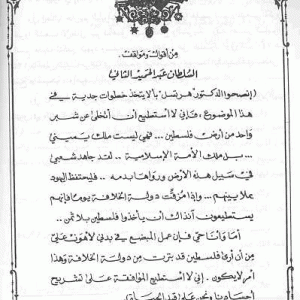 من أقوال ومواقف
السلطان عبد الحميد الثاني
(انصحوا الدكتور هرتسل بألا يتخذ خطوات جدية في
هذا الموضوع، فإني لا أستطيع أن أتخلى عن شبر
واحد من أرض فلسطين... فهي ليست ملك يميني
... بل ملك الأمة الإسلامية... لقد جاهد شعبي
في سبيل هذه الأرض ورواها بدمه.. فليحتفظ اليهود
بملايينهم... وإذا مزقت دولة الخلافة يوما فإنهم
يستطيعون آنذاك أن يأخذوا فلسطين بلا ثمن..
أما وأنا حي فإن عمل المبضع في بدني لأهون علي
من أن أرى فلسطين قد بترت من دولة الخلافة وهذا
أمر لا يكون. إني لا أستطيع الموافقة على تشريح
أجسادنا ونحن على قيد الحياة